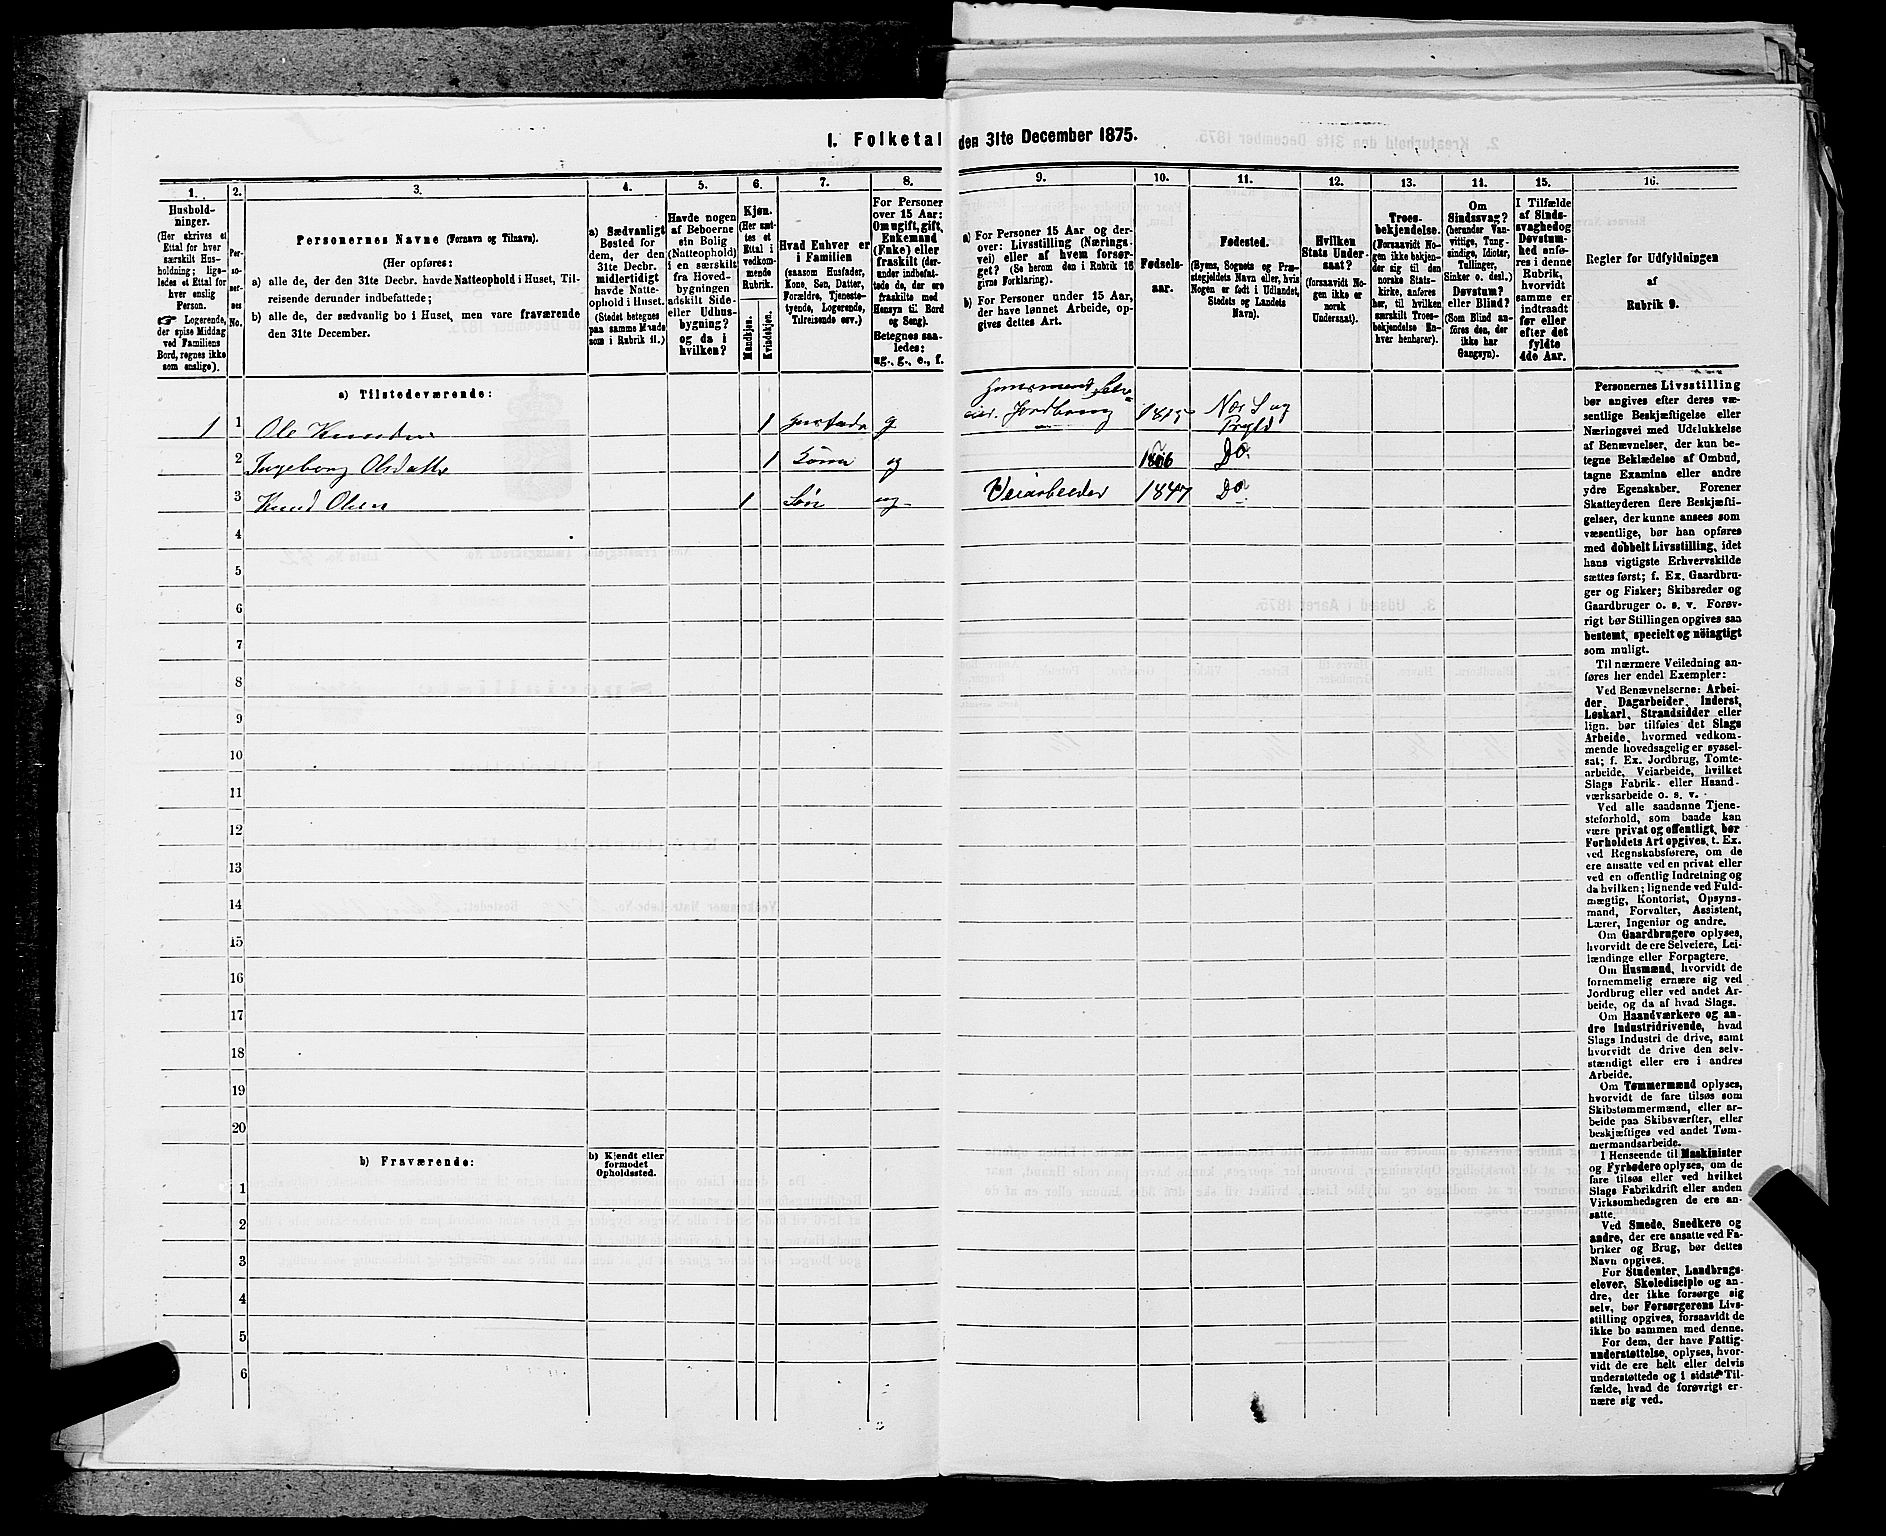 I. Folketal den 31te December 1875.
1.
Husholdninger.
(Her skrives et
Ettal for hver
særskilt Husholdning;
ligeledes et Ettal for
hver enslig
Person.
☞ Logerende,
der spise Middag
ved Familiens
Bord, regnes ikke
som enslige).
2.
Personernes
No.
3.
Personernes Navne (Fornavn og Tilnavn).
(Her opføres:
a) alle de, der den 31te Decbr. havde Natteophold i Huset, Tilreisende derunder indbefattede;
b) alle de, der sædvanlig bo i Huset, men vare fraværende
den 31te December.
4.
a) Sædvanligt
Bosted for
dem, der den
31te Decbr.
midlertidigt
havde Natteophold i Huset.
(Stedet betegnes
paa samme Maade
som i Rubrik 11.)
5.
Havde nogen
af Beboerne
sin Bolig
(Natteophold)
i en særskilt
fra Hovedbygningen
adskilt Side-
eller Udhusbygning?
og da i
hvilken?
6.
Kjøn.
(Her sættes et
Ettal i
vedkommende
Rubrik.
Mandkjøn.
Kvindekjøn.
7.
Hvad Enhver er
i Familien
(saasom Husfader,
Kone, Søn, Datter,
Forældre, Tjenestetyende, Logerende,
Tilreisende osv.)
8.
For Personer
over 15 Aar:
Om ugift, gift,
Enkemand
(Enke) eller
fraskilt (derunder indbefattede de, der ere
fraskilte med
Hensyn til Bord
og Seng).
Betegnes saaledes:
ug., g., e., f.
9.
a) For Personer 15 Aar og derover: Livsstilling (Næringsvei) eller af hvem forsørget? (Se herom den i Rubrik 16
givne Forklaring).
b) For Personer under 15 Aar,
der have lønnet Arbeide, opgives dettes Art.
10.
Fødselsaar.
11.
Fødested.
(Byens, Sognets og Præstegjeldets Navn eller, hvis
Nogen er født i Udlandet,
Stedets og Landets
Navn).
12.
Hvilken
Stats Undersaat?
(forsaavidt Nogen ikke er
norsk
Undersaat).
13.
Troesbekjendelse.
(Forsaavidt Nogen ikke bekjender sig til den
norske Statskirke, anføres
her, til hvilken
særskilt Troesbekjendelse Enhver henhører).
14.
Om
Sindssvag?
(herunder Vanvittige, Tungsindige, Idioter,
Tullinger,
Sinker o. desl.)
Døvstum?
eller Blind?
(Som Blind anføres den, der
ikke har
Gangsyn).
15.
I Tilfælde
af Sindssvaghed og
Døvstumhed anføres i denne
Rubrik,
hvorvidt
samme er
indtraadt
før eller
efter det
fyldte
4de Aar.
16.
Regler for Udfyldningen
af
Rubrik 9.
a) Tilstedeværende:
1 1 Ole Knudsen 1 Husfader g Husmand Jordbrug
2 Ingeborg Olsdatter 1 Kone g Do.
3 Knud Olsen 1 Søn ug Veiarbeider 1847 Do
4
5
6
7
8
9
10
11
12
13
14
15
16
17
18
19
20
b) Fraværende:
b) Kjendt eller
formodet
Opholdssted.
1
2
3
4
5
6
Personernes Livsstilling
bør angives efter deres væsentlige Beskjæftigelse eller
Næringsvei med Udelukkelse
af Benævnelser, der kun betegne Beklædelse af Ombud,
tagne Examina eller andre
ydre Egenskaber. Forener
Skatteyderen flere Beskjæftigelser, der kunne ansees som
væsentlige, bør han opføres
med dobbelt Livsstilling, idet
hans vigtigste Erhvervskilde
sættes først; f. Ex. Gaardbruger og Fisker; Skibsreder og
Gaardbruger o. s. v. Forøvrigt bør Stillingen opgives saa
bestemt, specielt og nøiagtigt
som muligt.
Til nærmere Veiledning anføres her endel Exempler:
Ved Benævnelserne: Arbeider, Dagarbeider, Inderst,
Løskarl, Strandsidder eller
lign. bør tilføies det Slags
Arbeide, hvormed vedkommende hovedsagelig er sysselsat; f. Ex. Jordbrug, Tomtearbeide, Veiarbeide, hvilket
Slags Fabrik- eller Haandværksarbeide o. s. v.
Ved alle saadanne Tjenesteforhold, som baade kan
være privat og offentligt, bør
Forholdets Art opgives, t. Ex.
ved Regnskabsførere, om de
ere ansatte ved en privat eller
ved en offentlig Indretning og
da hvilken; lignende ved Fuldmægtig, Kontorist, Opsynsmand, Forvalter, Assistent,
Lærer, Ingeniør og andre.
Om Gaardbrugere oplyses,
hvorvidt de ere Selveiere, Leilændinge eller Forpagtere.
Om Husmænd, hvorvidt de
fornemmelig ernære sig ved
Jordbrug eller ved andet Arbeide, og da af hvad Slags.
Om Haandværkere og andre Industridrivende, hvad
Slags Industri de drive, samt
hvorvidt de drive den selvstændigt eller ere i andres
Arbeide.
Om Tømmermænd oplyses,
hvorvidt de fare tilsøs som
Skibstømmermænd, eller arbeide paa Skibsværfter, eller
beskjæftiges ved andet Tømmermandsarbeide.
I Henseende til Maskinister
og Fyrbødere oplyses, om de
fare tilsøs eller ved hvilket
Slags Fabrikdrift eller anden
Virksomhedsgren de ere ansatte.
Ved Smede, Snedkere og
andre, der ere ansatte ved Fabriker og Brug, bør dettes
Navn opgives.
For Studenter, Landbrugselever, Skoledisciple og andre, der ikke forsørge sig
selv, bør Forsørgerens Livsstilling opgives, forsaavidt de
ikke bo sammen med denne.
For dem, der have Fattigunderstøttelse, oplyses, hvorvidt de ere helt eller delvis
understøttede og i sidste Tilfælde, hvad de forøvrigt ernære sig ved.